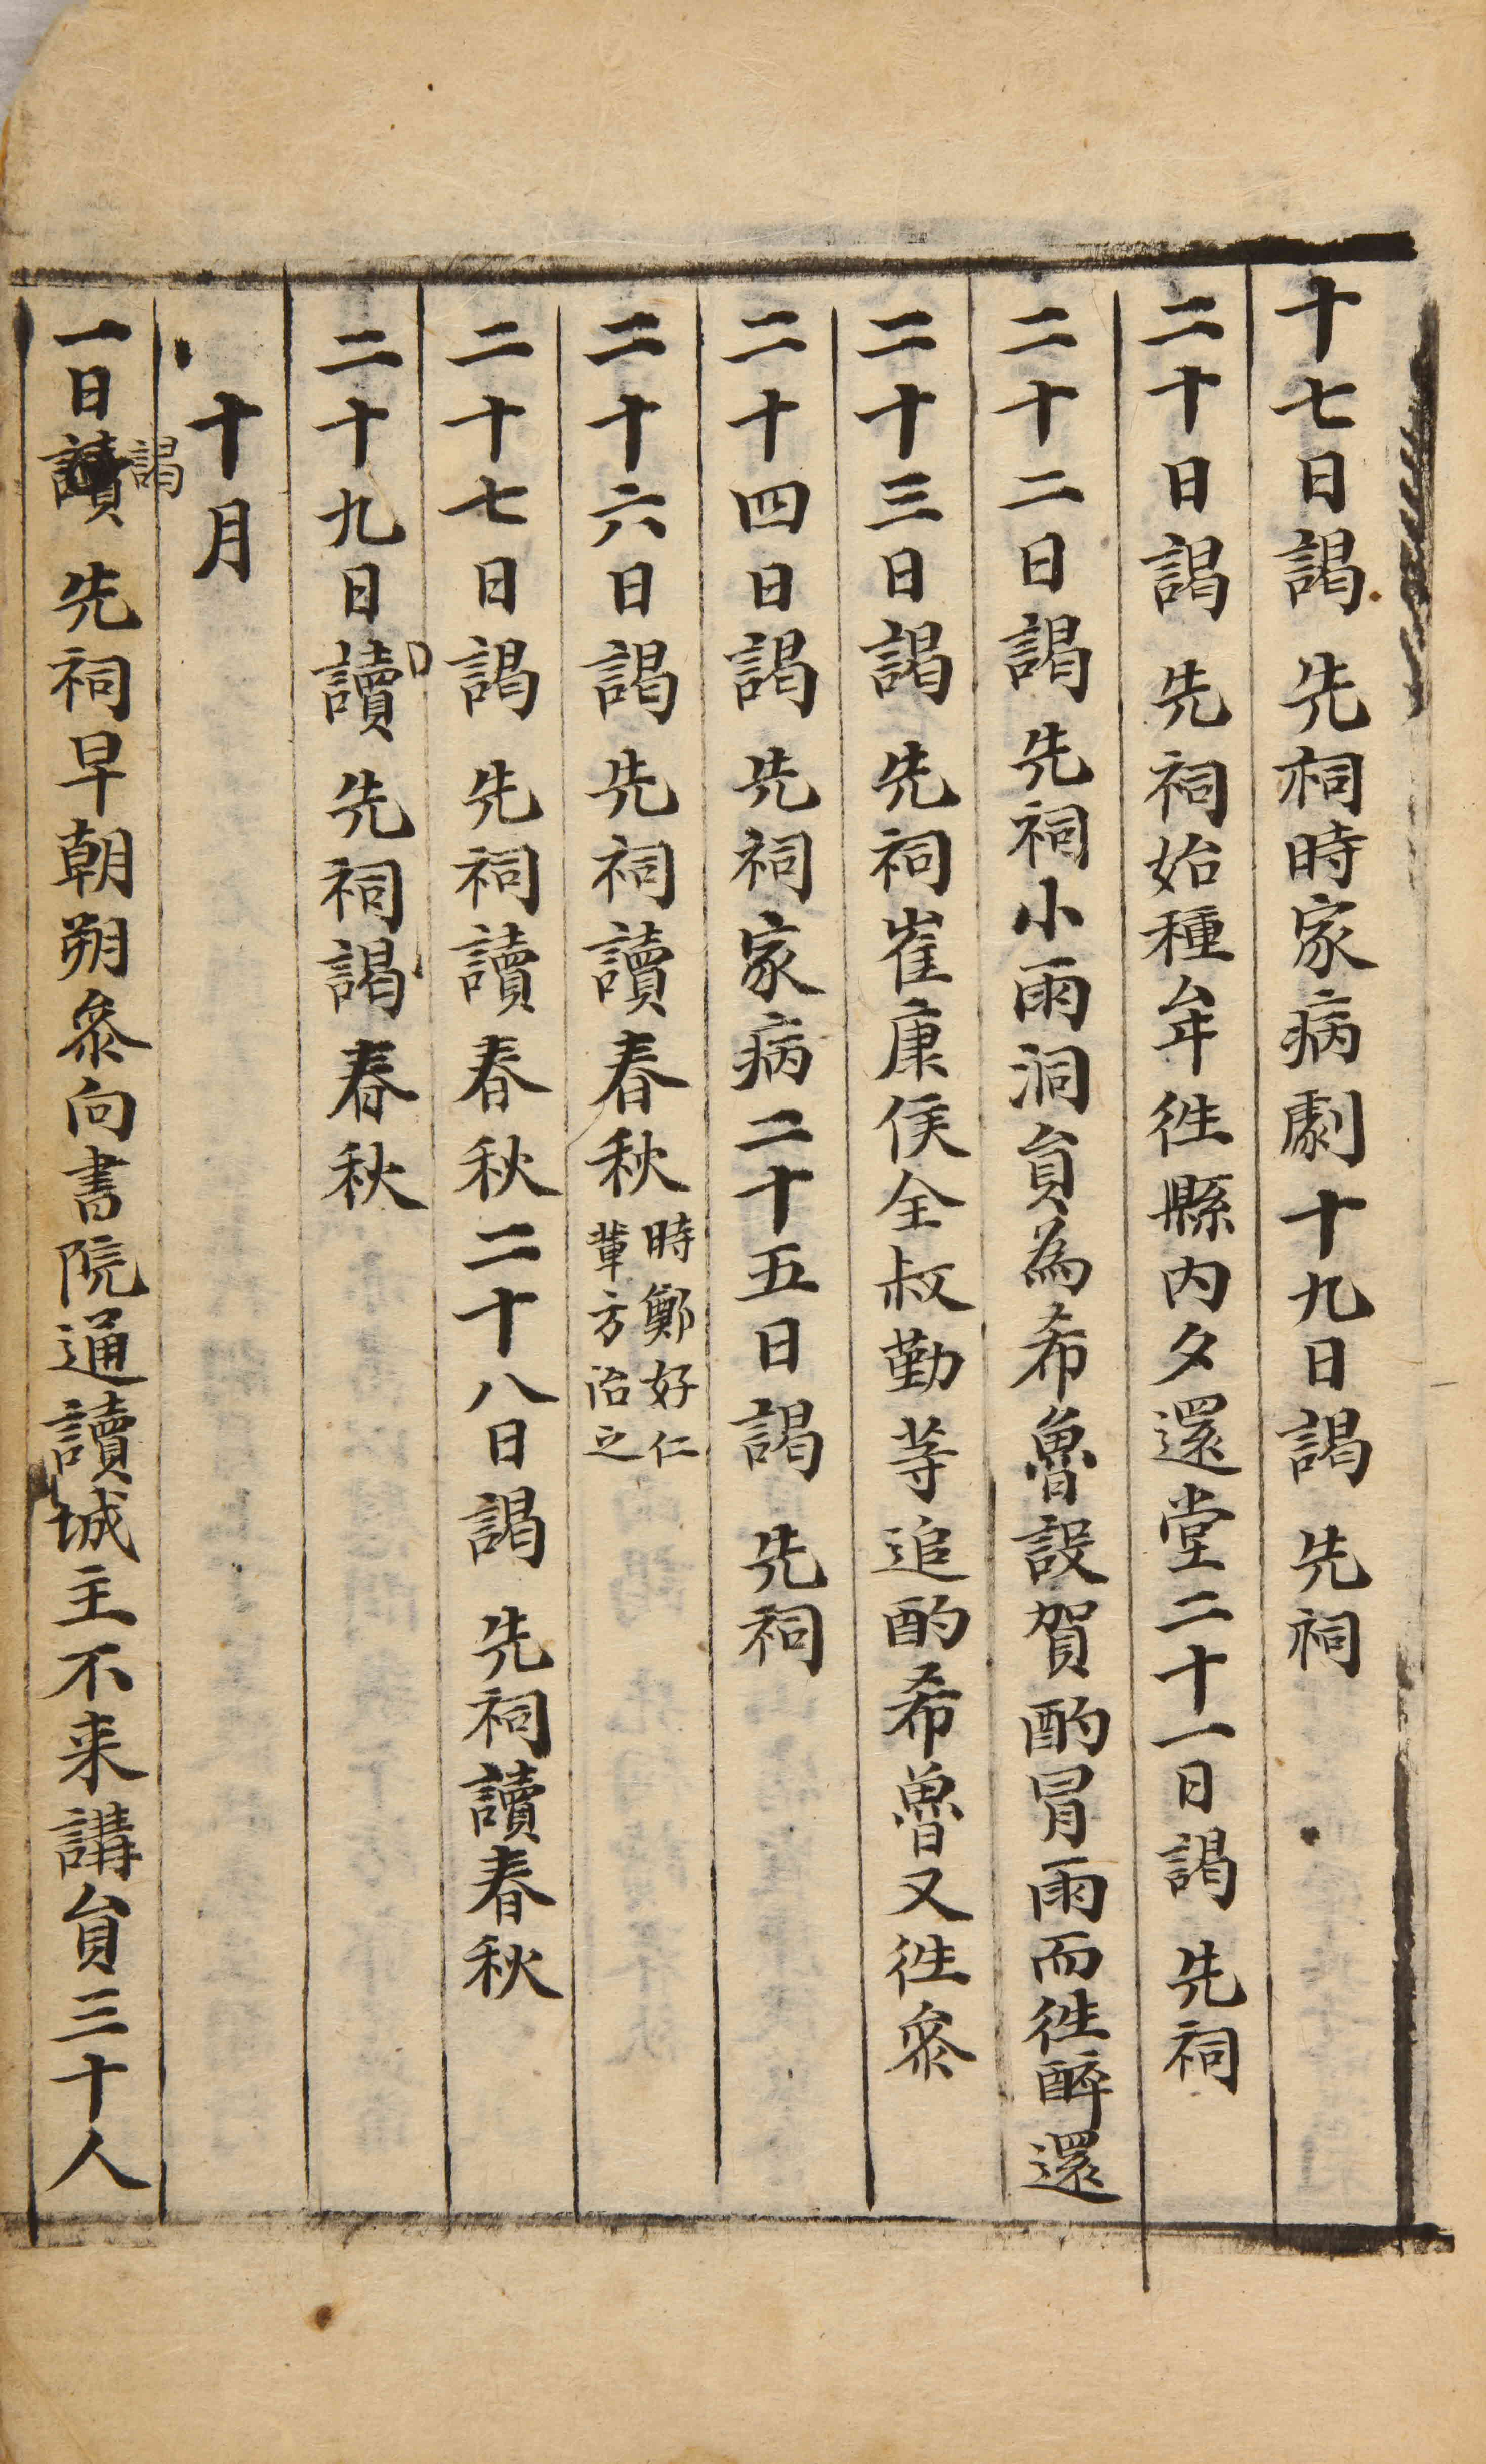 十七日謁 先祠時家病劇十九日謁 先祠
二十日謁 先祠始種牟徃縣内夕還堂二十一日謁 先祠
二十二日謁 先祠小雨洞貟為希魯設賀酌冐雨而徃醉還
二十三日謁 先祠崔康侯全叔勤等追酌希魯又徃叅
二十四日謁 先祠家病二十五日謁 先祠
二十六日謁 先祠讀春秋時鄭好仁
軰方治之
二十七日謁 先祠讀春秋二十八日謁 先祠讀春秋
二十九日讀 先祠謁春秋
十月
謁
一日讀 先祠早朝朔叅向書院通讀城主不来講貟三十人